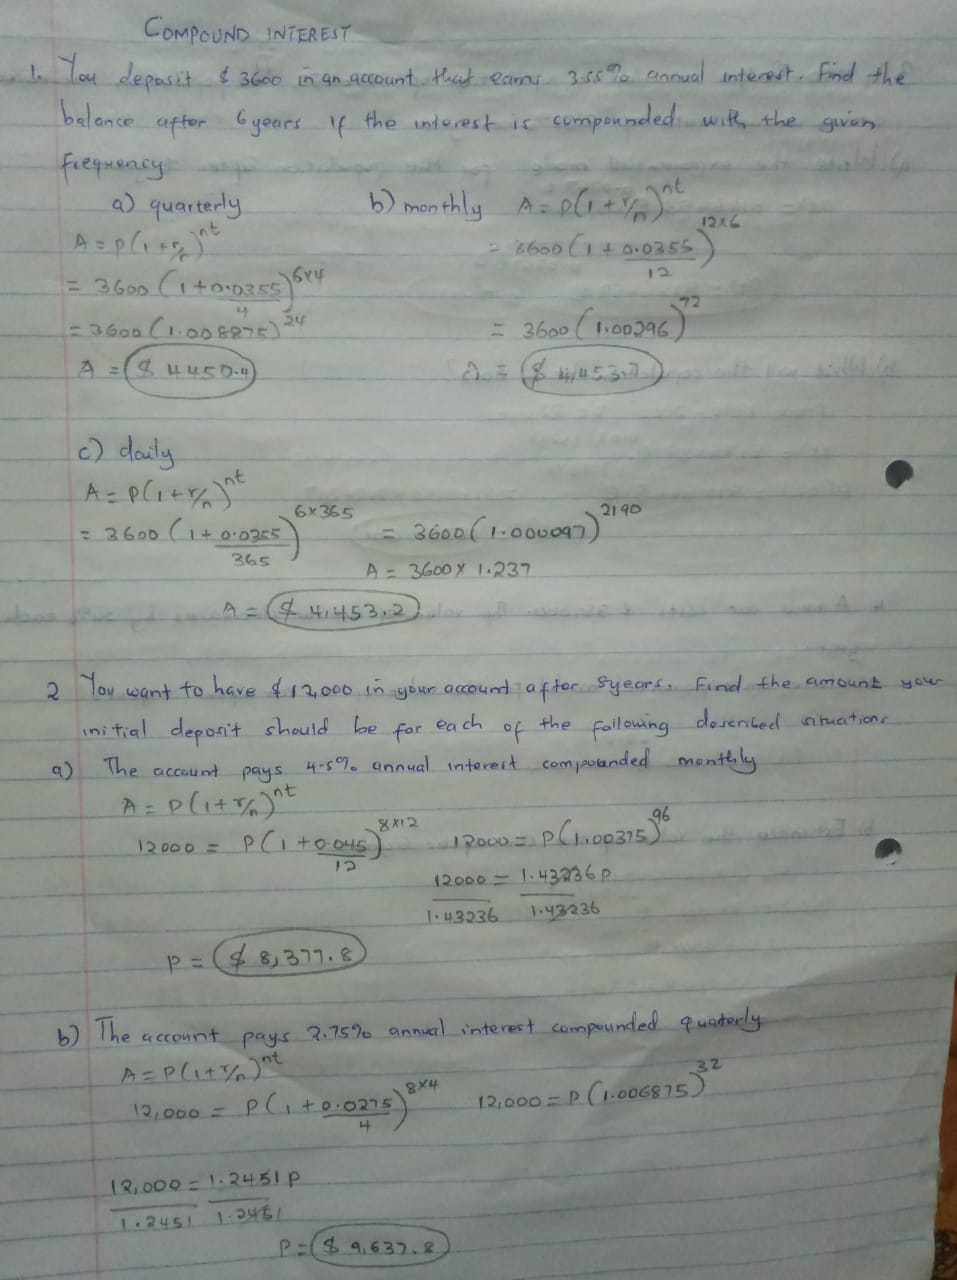 COMPOUND INTEREST
1. You deposit $ 3600 in an account that earns 3.55% annual interest. Find the
balance after 6 years if the interest is compounded with the given
frequency
a) quarterly
A = P(1 + r/n)^nt
= 3600 (1 + 0.0355/4)^6x4
= 3600 (1.008875)^24
A = $ 4450.4
b) monthly A = P(1 + r/n)^nt
= 3600 (1 + 0.0355/12)^12x6
= 3600 (1.00296)^72
A = $ 4,453.7
c) daily
A = P(1 + r/n)^nt
= 3600 (1 + 0.0355/365)^6x365 = 3600 (1.000097)^2190
A = 3600 x 1.237
A = $ 4,453.2
2 You want to have $ 12,000 in your account after 8years. Find the amount your
initial deposit should be for each of the following described situations
a) The account pays 4.5% annual interest compounded monthly
A = P(1 + r/n)^nt
12000 = P(1 + 0.045/12)^8x12 12000 = P(1.00375)^96
12000/1.43236 = 1.43236P/1.43236
P = $ 8,377.8
b) The account pays 2.75% annual interest compounded quaterly
A = P(1 + r/n)^nt
12,000 = P(1 + 0.0275/4)^8x4 12,000 = P(1.006875)^32
12,000/1.2451 = 1.2451P/1.2451
P = $ 9,637.8